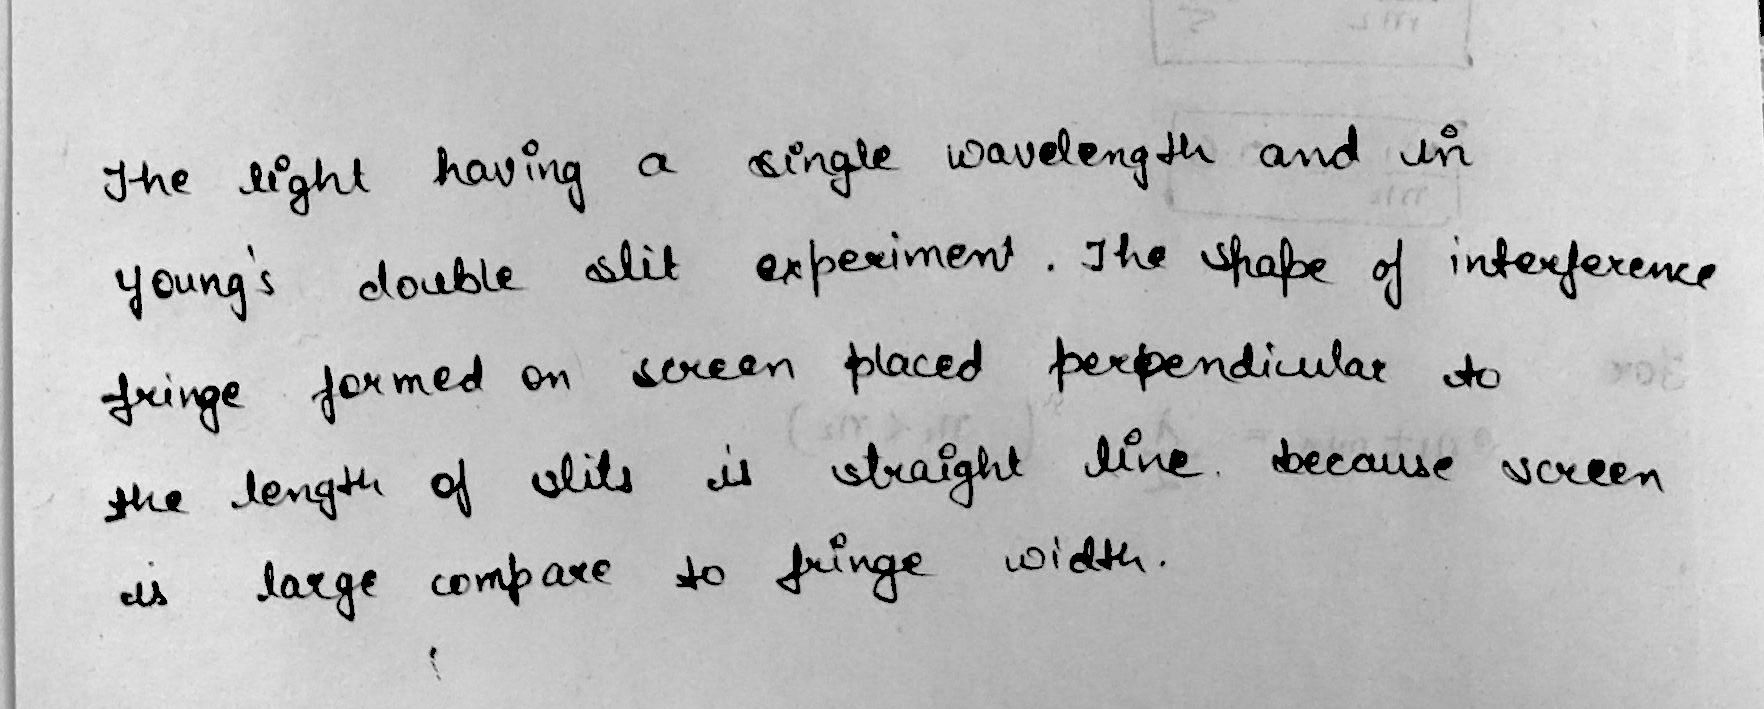 The light having a single wavelength and in
young's double slit experiment. The shape of interference
fringe formed on screen placed perpendicular to
the length of slits is straight line. because screen
is large compare to fringe width.